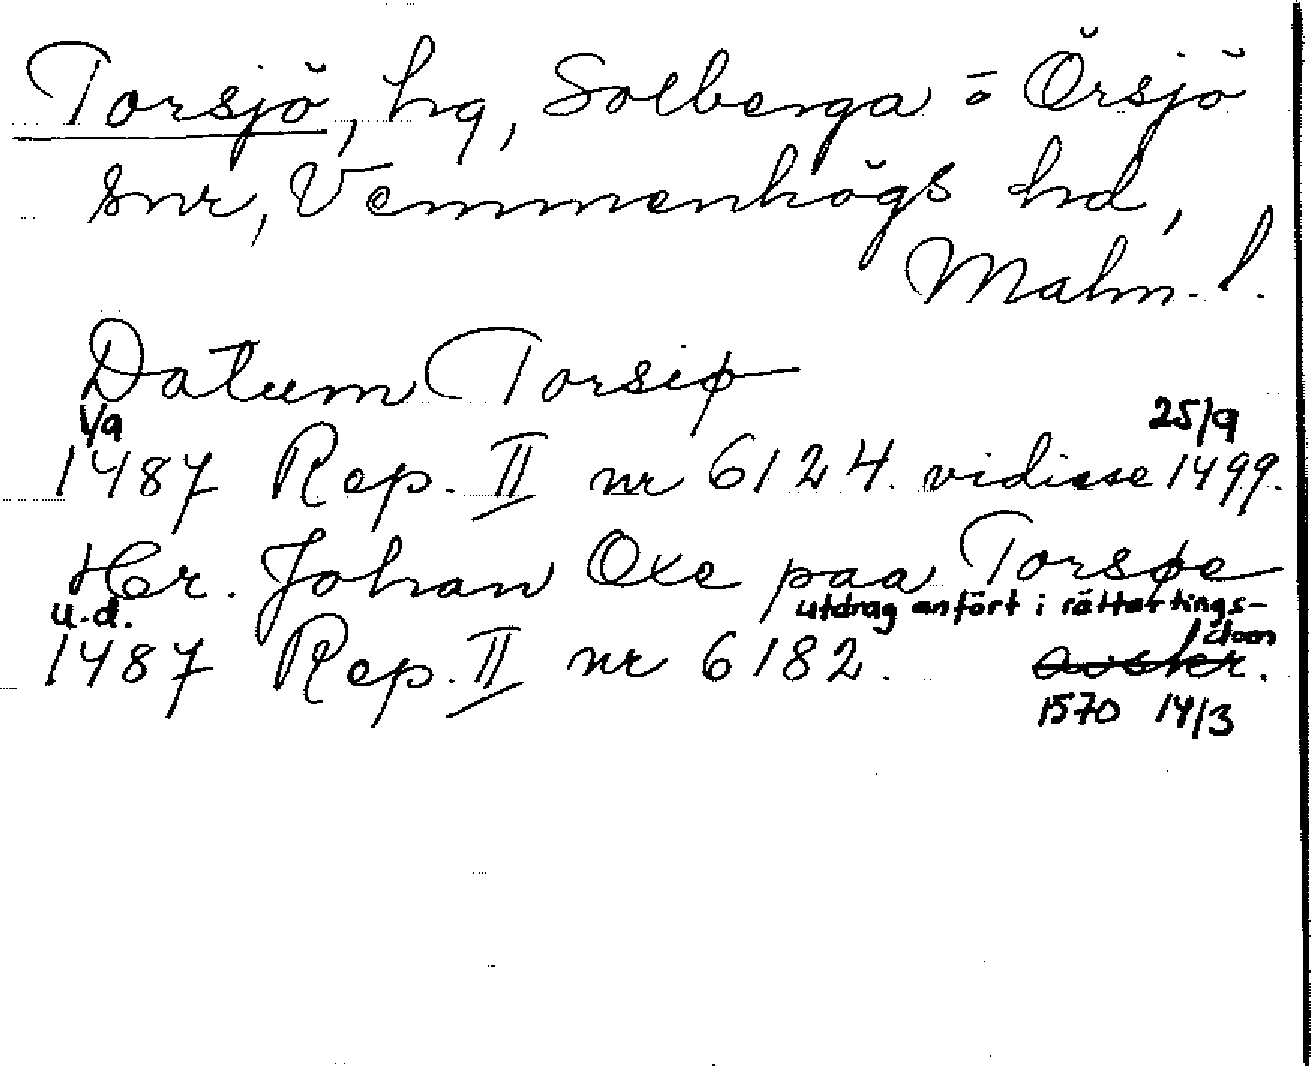 Torsjö, hg, Solberga o Örsjö
snr, Vemmenhögs hd,
Malm. l.
Datum Torsiø
1/9 25/9
1487 Rep. II nr 6124. vidisse 1499.
Her. Johan Oxe paa Torsøe
u.d. utdrag anfört i rättartings-
dom
1487 Rep. II nr 6182. avskr.
1570 14/3